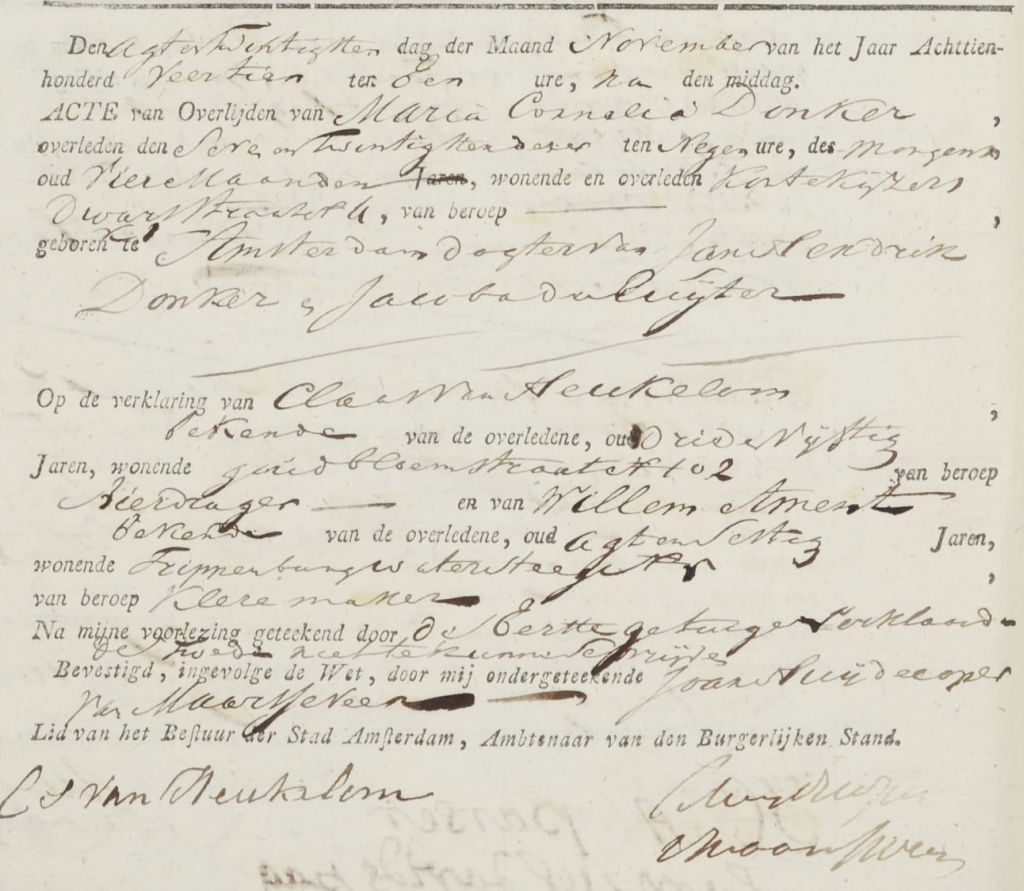 Den agt en twintigsten dag der Maand November van het Jaar Achttien-
honderd Veertien ten Een ure, na den middag.
ACTE van Overlijden van Maria Cornelia Donker ,
overleden den Seven en twintigsten dezer ten Negen ure, des morgens,
oud Vier Maanden Jaren, wonende en overleden Korte Keyzers
Dwarsstraat N 4, van beroep —— ,
geboren te Amsterdam dogter van Jan Hendrik
Donker & Jacoba de Ruijter
Op de verklaring van Claas Van Heukelom ,
bekende van de overledene, oud Drie & Vyftig
Jaren, wonende goudbloemstraat N 102 van beroep
Bierdrager —— en van Willem Ament
bekende van de overledene, oud agt en Sestig Jaren,
wonende Trippenburgwatersteeg ,
van beroep Kleremaker
Na mijne voorlezing geteekend door de Eerste getuige verklaard-
de Tweede niet te kunne Schrijve
Bevestigd, ingevolge de Wet, door mij ondergeteekende Joan Huydecoper
Van Maarsseveen
Lid van het Bestuur der Stad Amsterdam, Ambtenaar van den Burgerlijken Stand.
Cs Van Heukelom